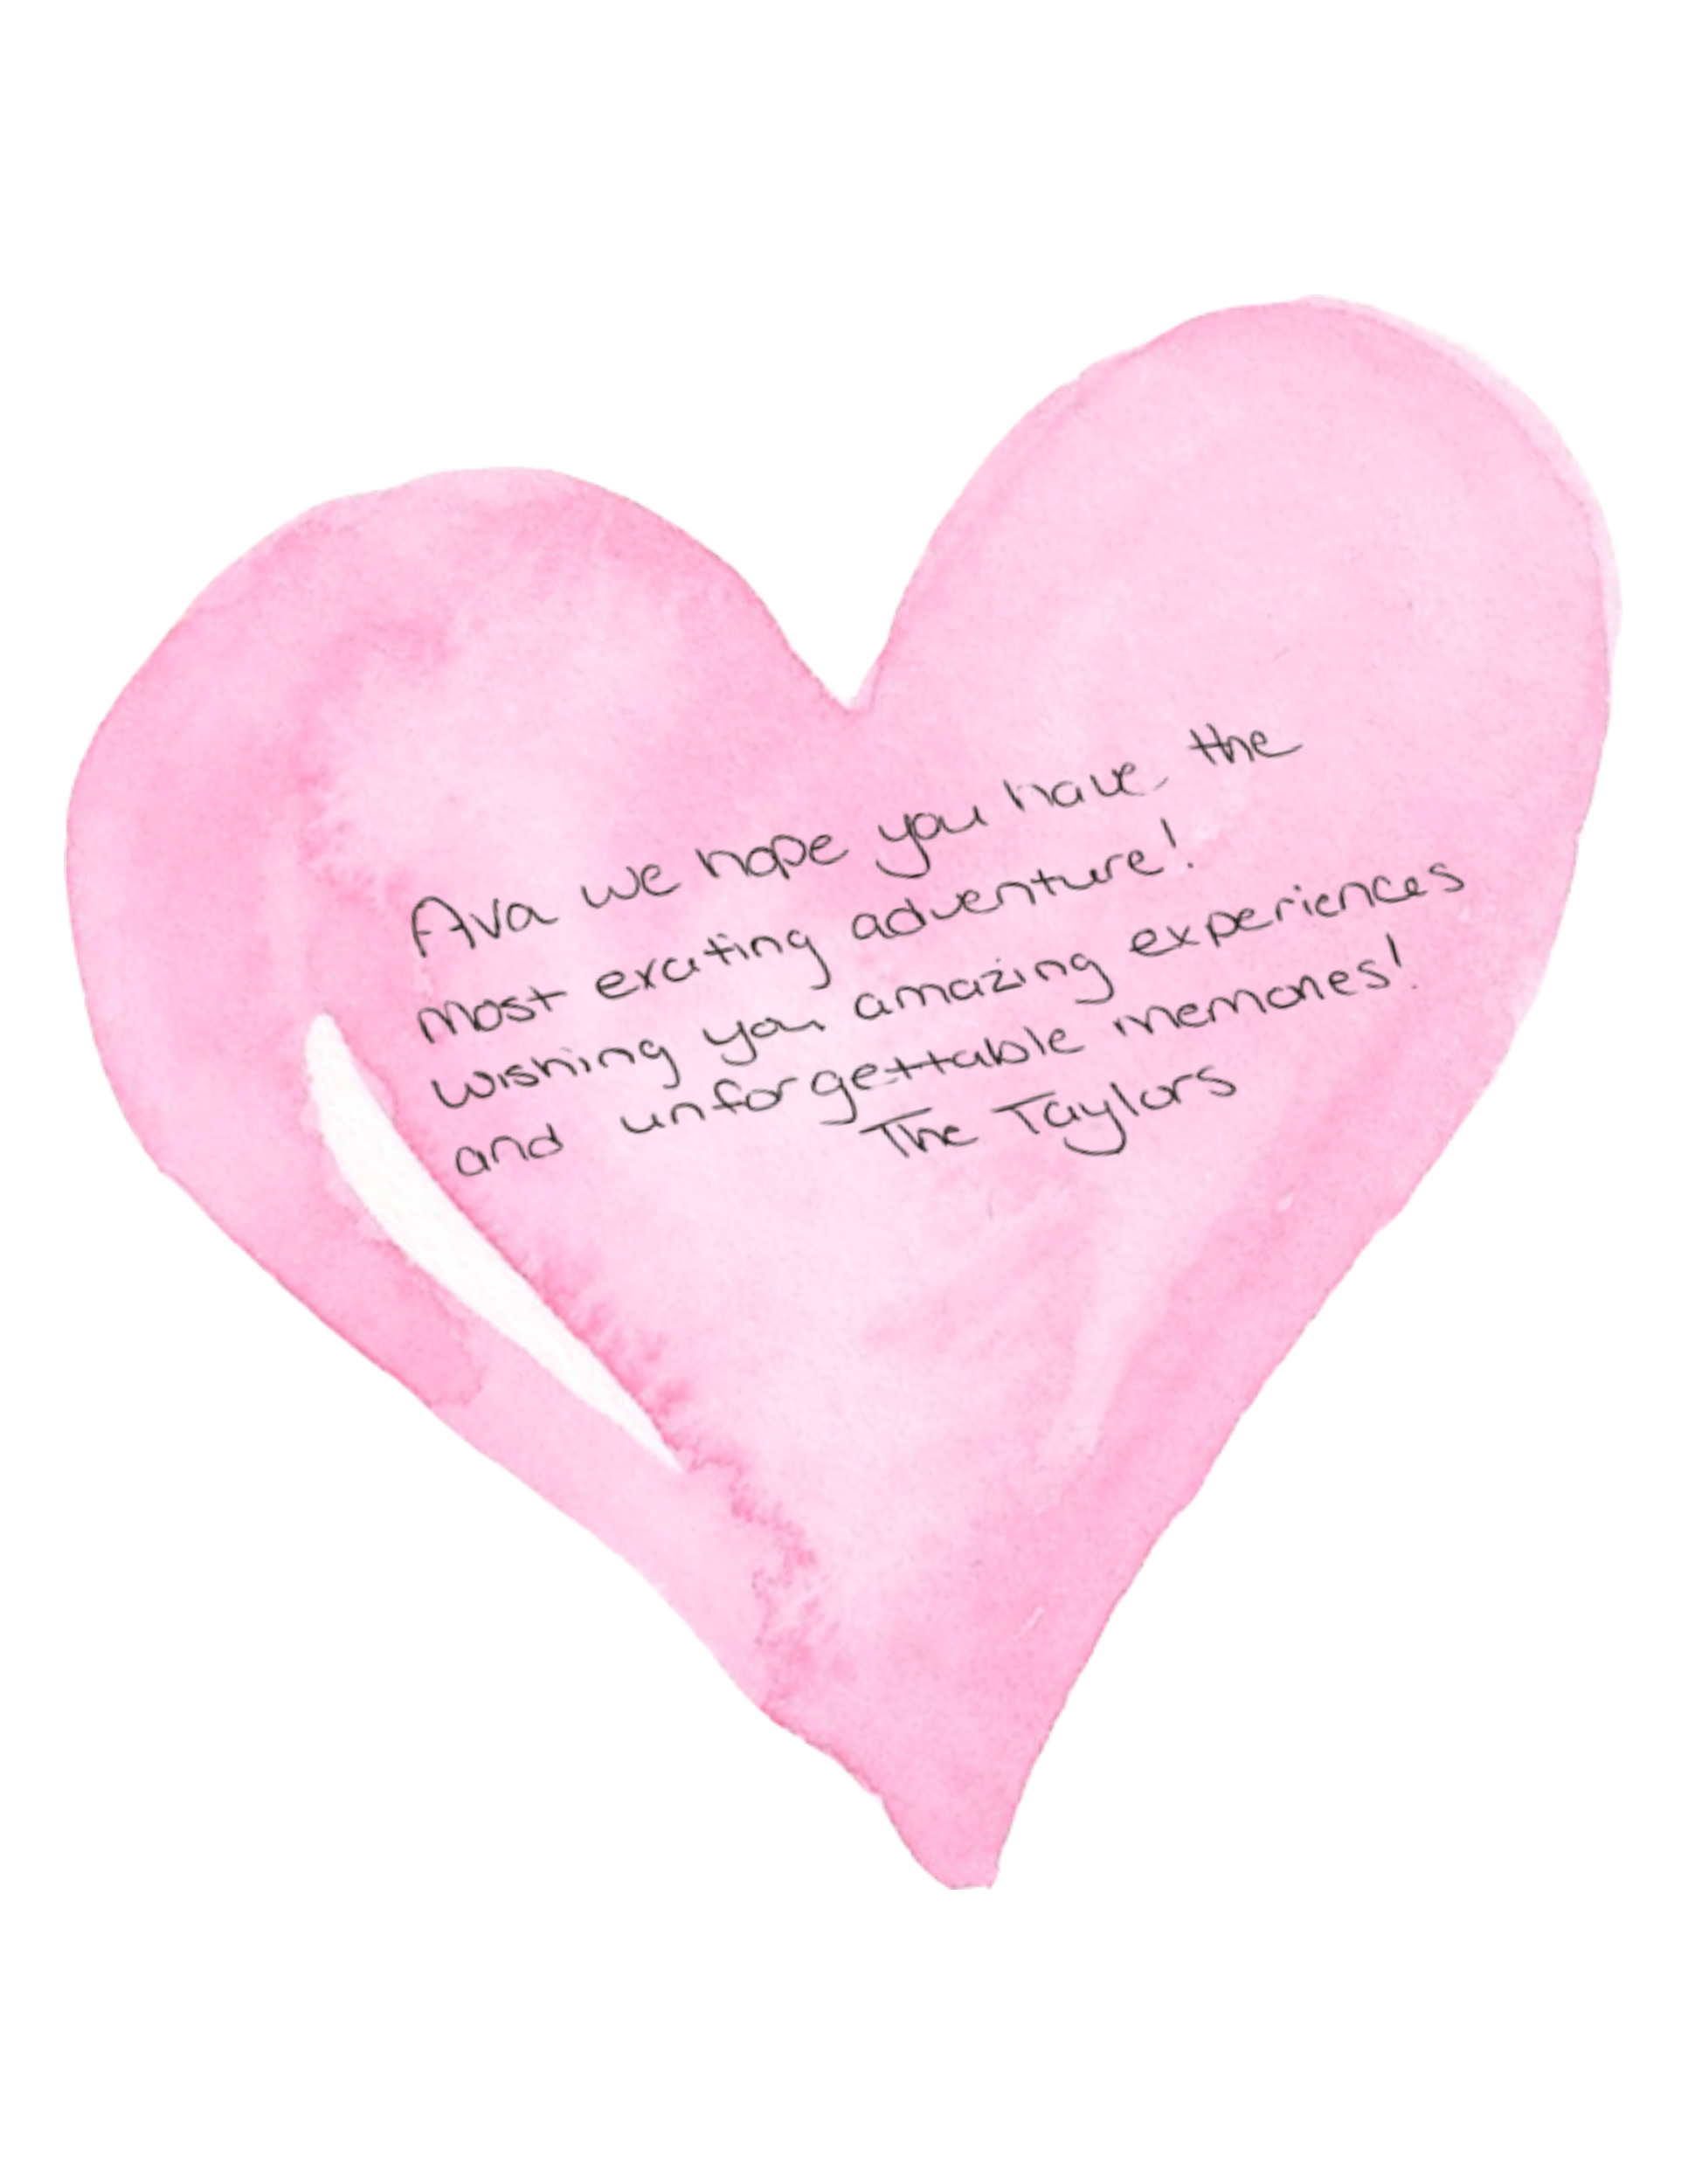 Ava we hope you have the
most exciting adventure!
wishing you amazing experiences
and unforgettable memories!
The Taylors